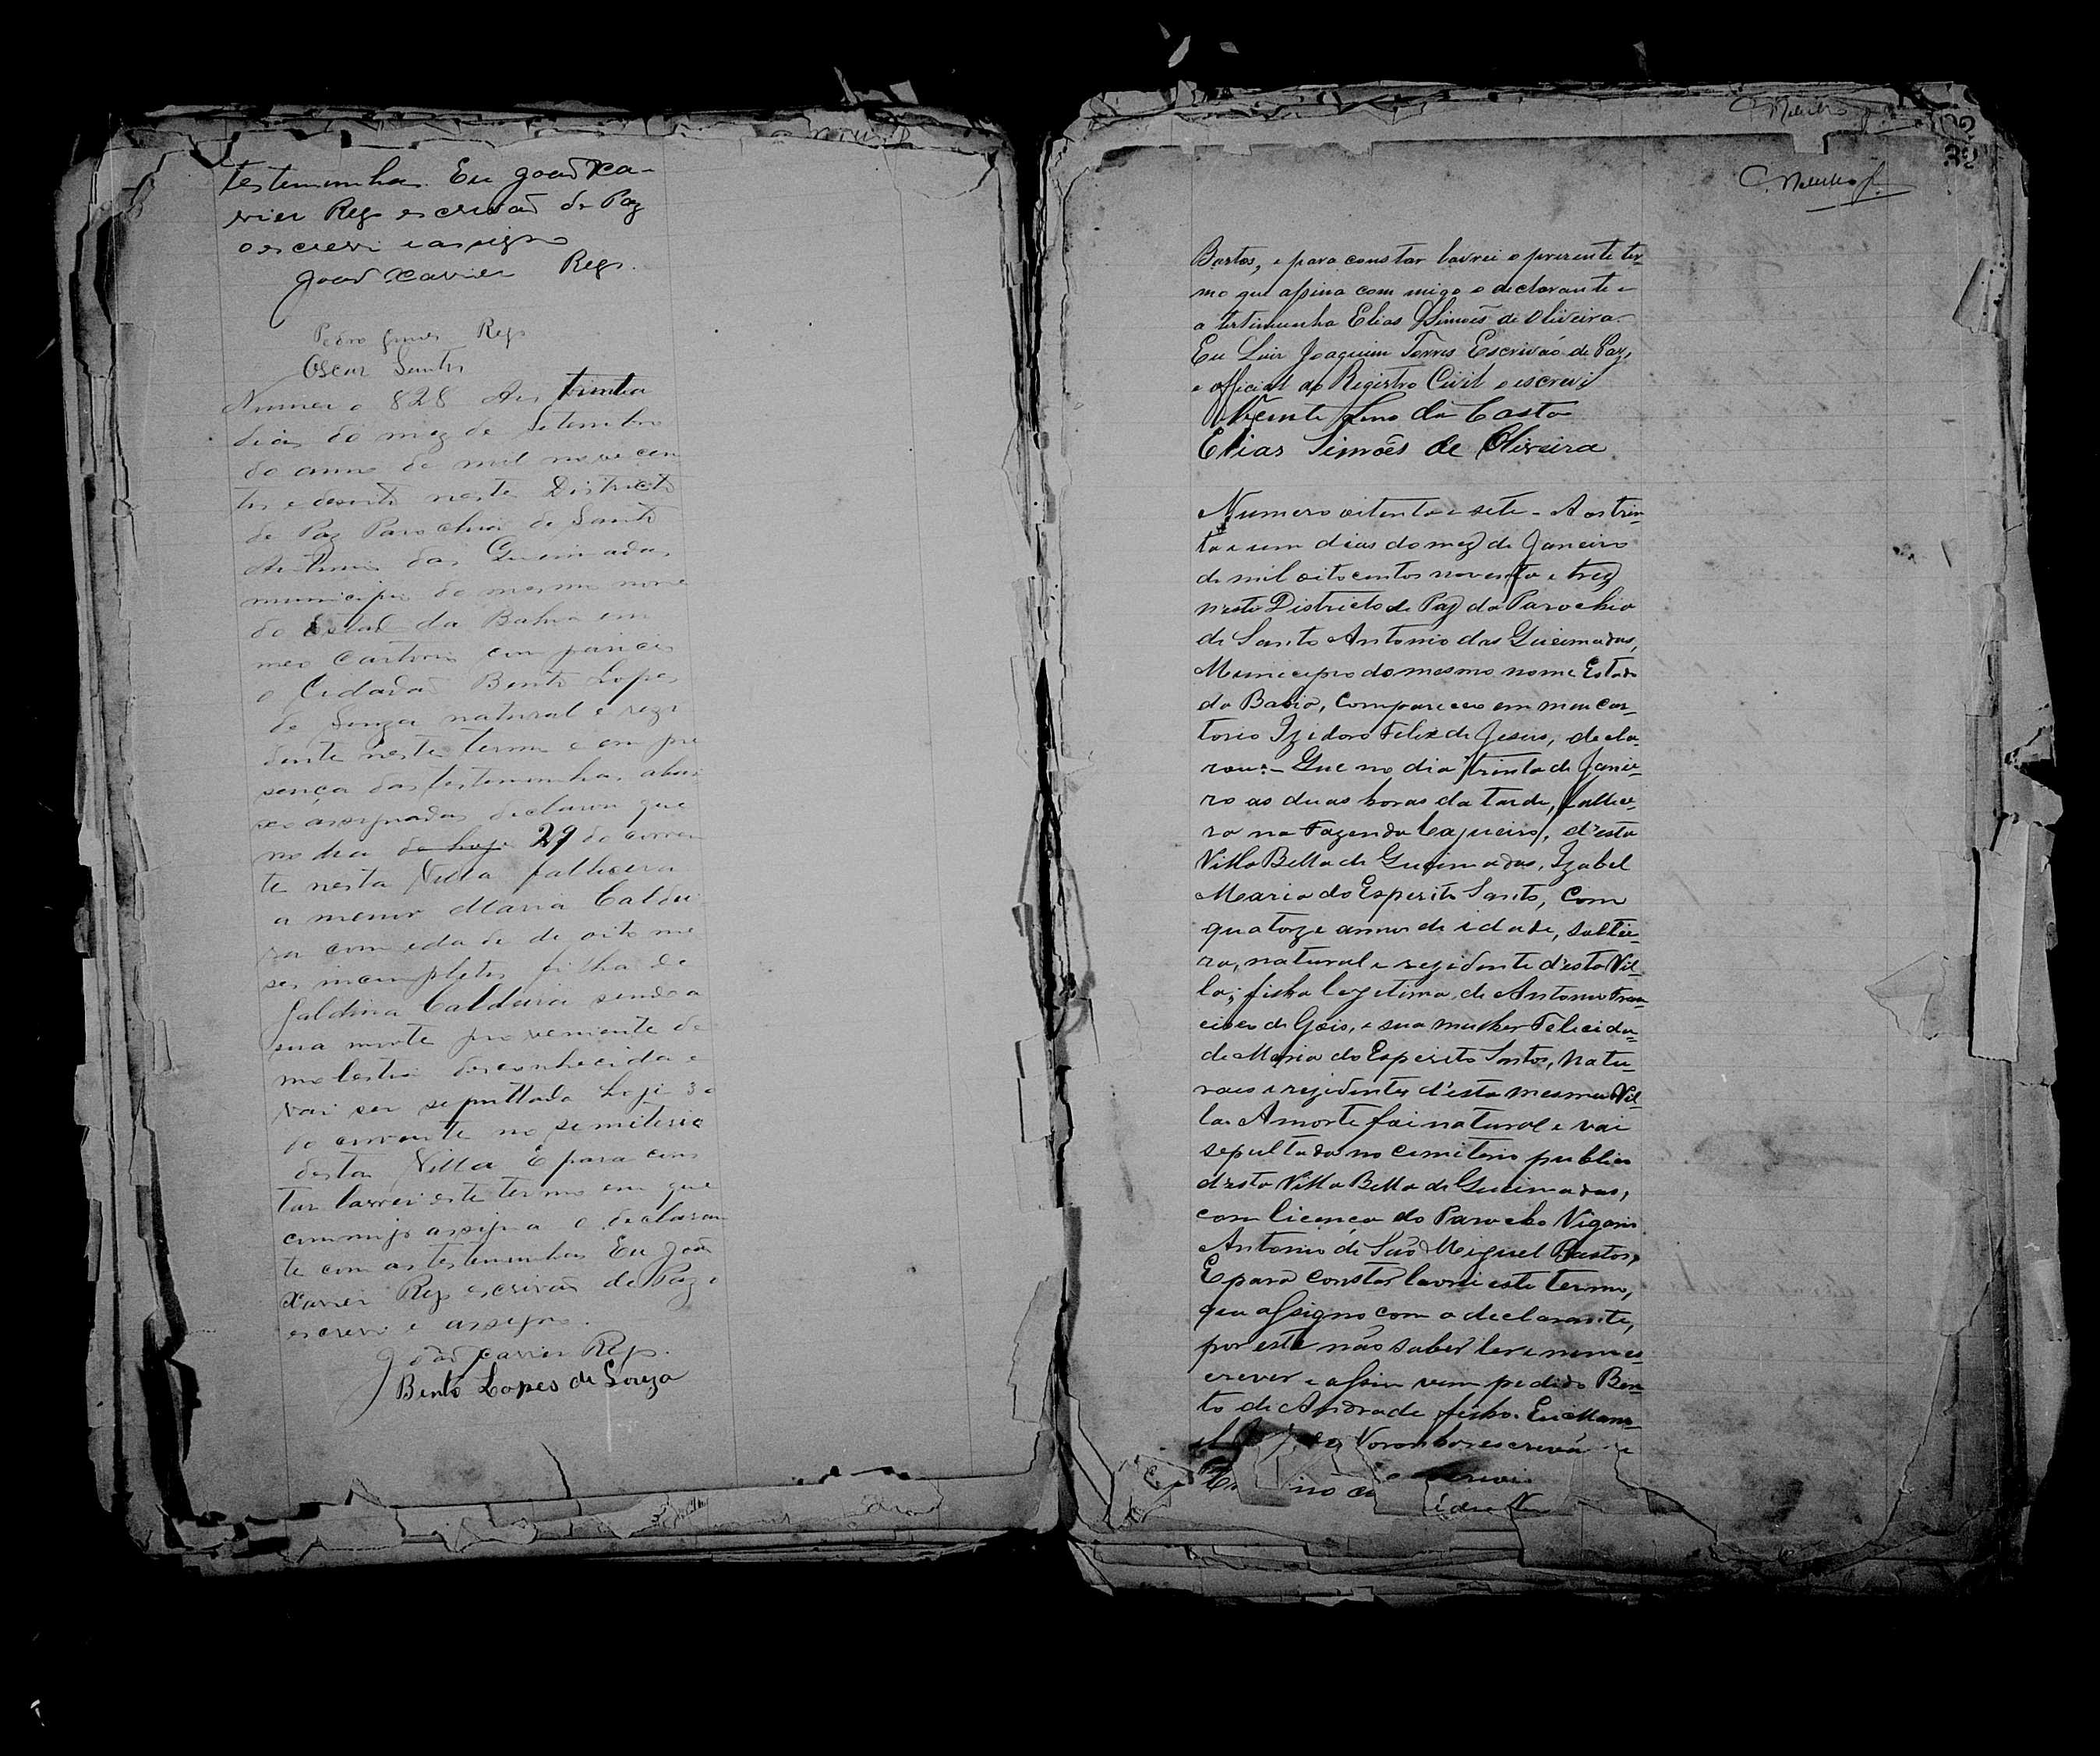 testemunhas. Eu João Xa-
vier Rego escrivão de Paz
o escrevi e assigno
João Xavier Rego.
Pedro Rego
Oscar Santos
Numero 828 Aos trinta
dias do mez de Setembro
do anno de mil novecen
tos e desoito neste Districto
de Paz Parochia de Santo
Antonio das Queimadas,
municipio do mesmo nome
do Estado da Bahia em
meo Cartorio com pareceo
o Cidadão Bento Lopes
de Souza natural e rezi
dente neste termo e em pre
sença das testemunhas abai
xo assignadas declarou que
no dia de hoje 29 do corren
te nesta Villa fallecera
a menor Maria Caldei
ra com edade de oito me
ses incompletos filha de
Galdina Caldeira sendo a
sua morte proveniente de
molestia desconhecida e
vai ser sepultada hoje 30
do corrente no semiterio
desta Villa E para cons
tar lavrei este termo em que
commigo assigna o declaran
te com as testemunhas Eu João
Xavier Rego escrivão de Paz o
escrevi e assigno.
João Xavier Rego.
Bento Lopes de Souza
Bastos, e para constar lavrei o presente ter-
mo que assina com migo o declarante e
a testimunha Elias Simões de Oliveira.
Eu Luiz Joaquim Torres Escrivão de Paz,
e official do Registro Civil o escrevi
Vicente Lino da Costa
Elias Simões de Oliveira
Numero oitenta e sete - Aos trin-
ta e um dias do mez de Janeiro
de mil oitocentos noventa e trez
neste Districto de Paz da Parochia
de Santo Antonio das Queimadas,
Municipio do mesmo nome Estado
da Bahia, Compareceo em meu car-
torio Izidoro Felix de Jesus, decla-
rou:- Que no dia trinta de Janei-
ro as duas horas da tarde, fallece-
ra na Fazenda Cajueiro, d'esta
Villa Bella de Queimadas, Izabel
Maria do Esperito Santo, Com
quatorze annos de idade, soltei-
ra, natural e rezidente d'esta Vil-
la; filha legitima de Antonio Fran-
cisco de Gois, e sua mulher Felicida-
de Maria do Esperito Santo, Natu-
raes e rezidentes d'esta mesma Vil-
la. A morte foi natural e vai
sepultada no Cimiterio publico
d'esta Villa Bella de Queimadas,
com licença do Parocho Vigario
Antonio de São Miguel Bastos,
E para constar lavrei este termo,
que assigno com o declarante,
por este não saber ler e nem es-
crever e assim vem pedido Ben-
to de Andrade filho. Eu Mano-
el Noronhor escrevã